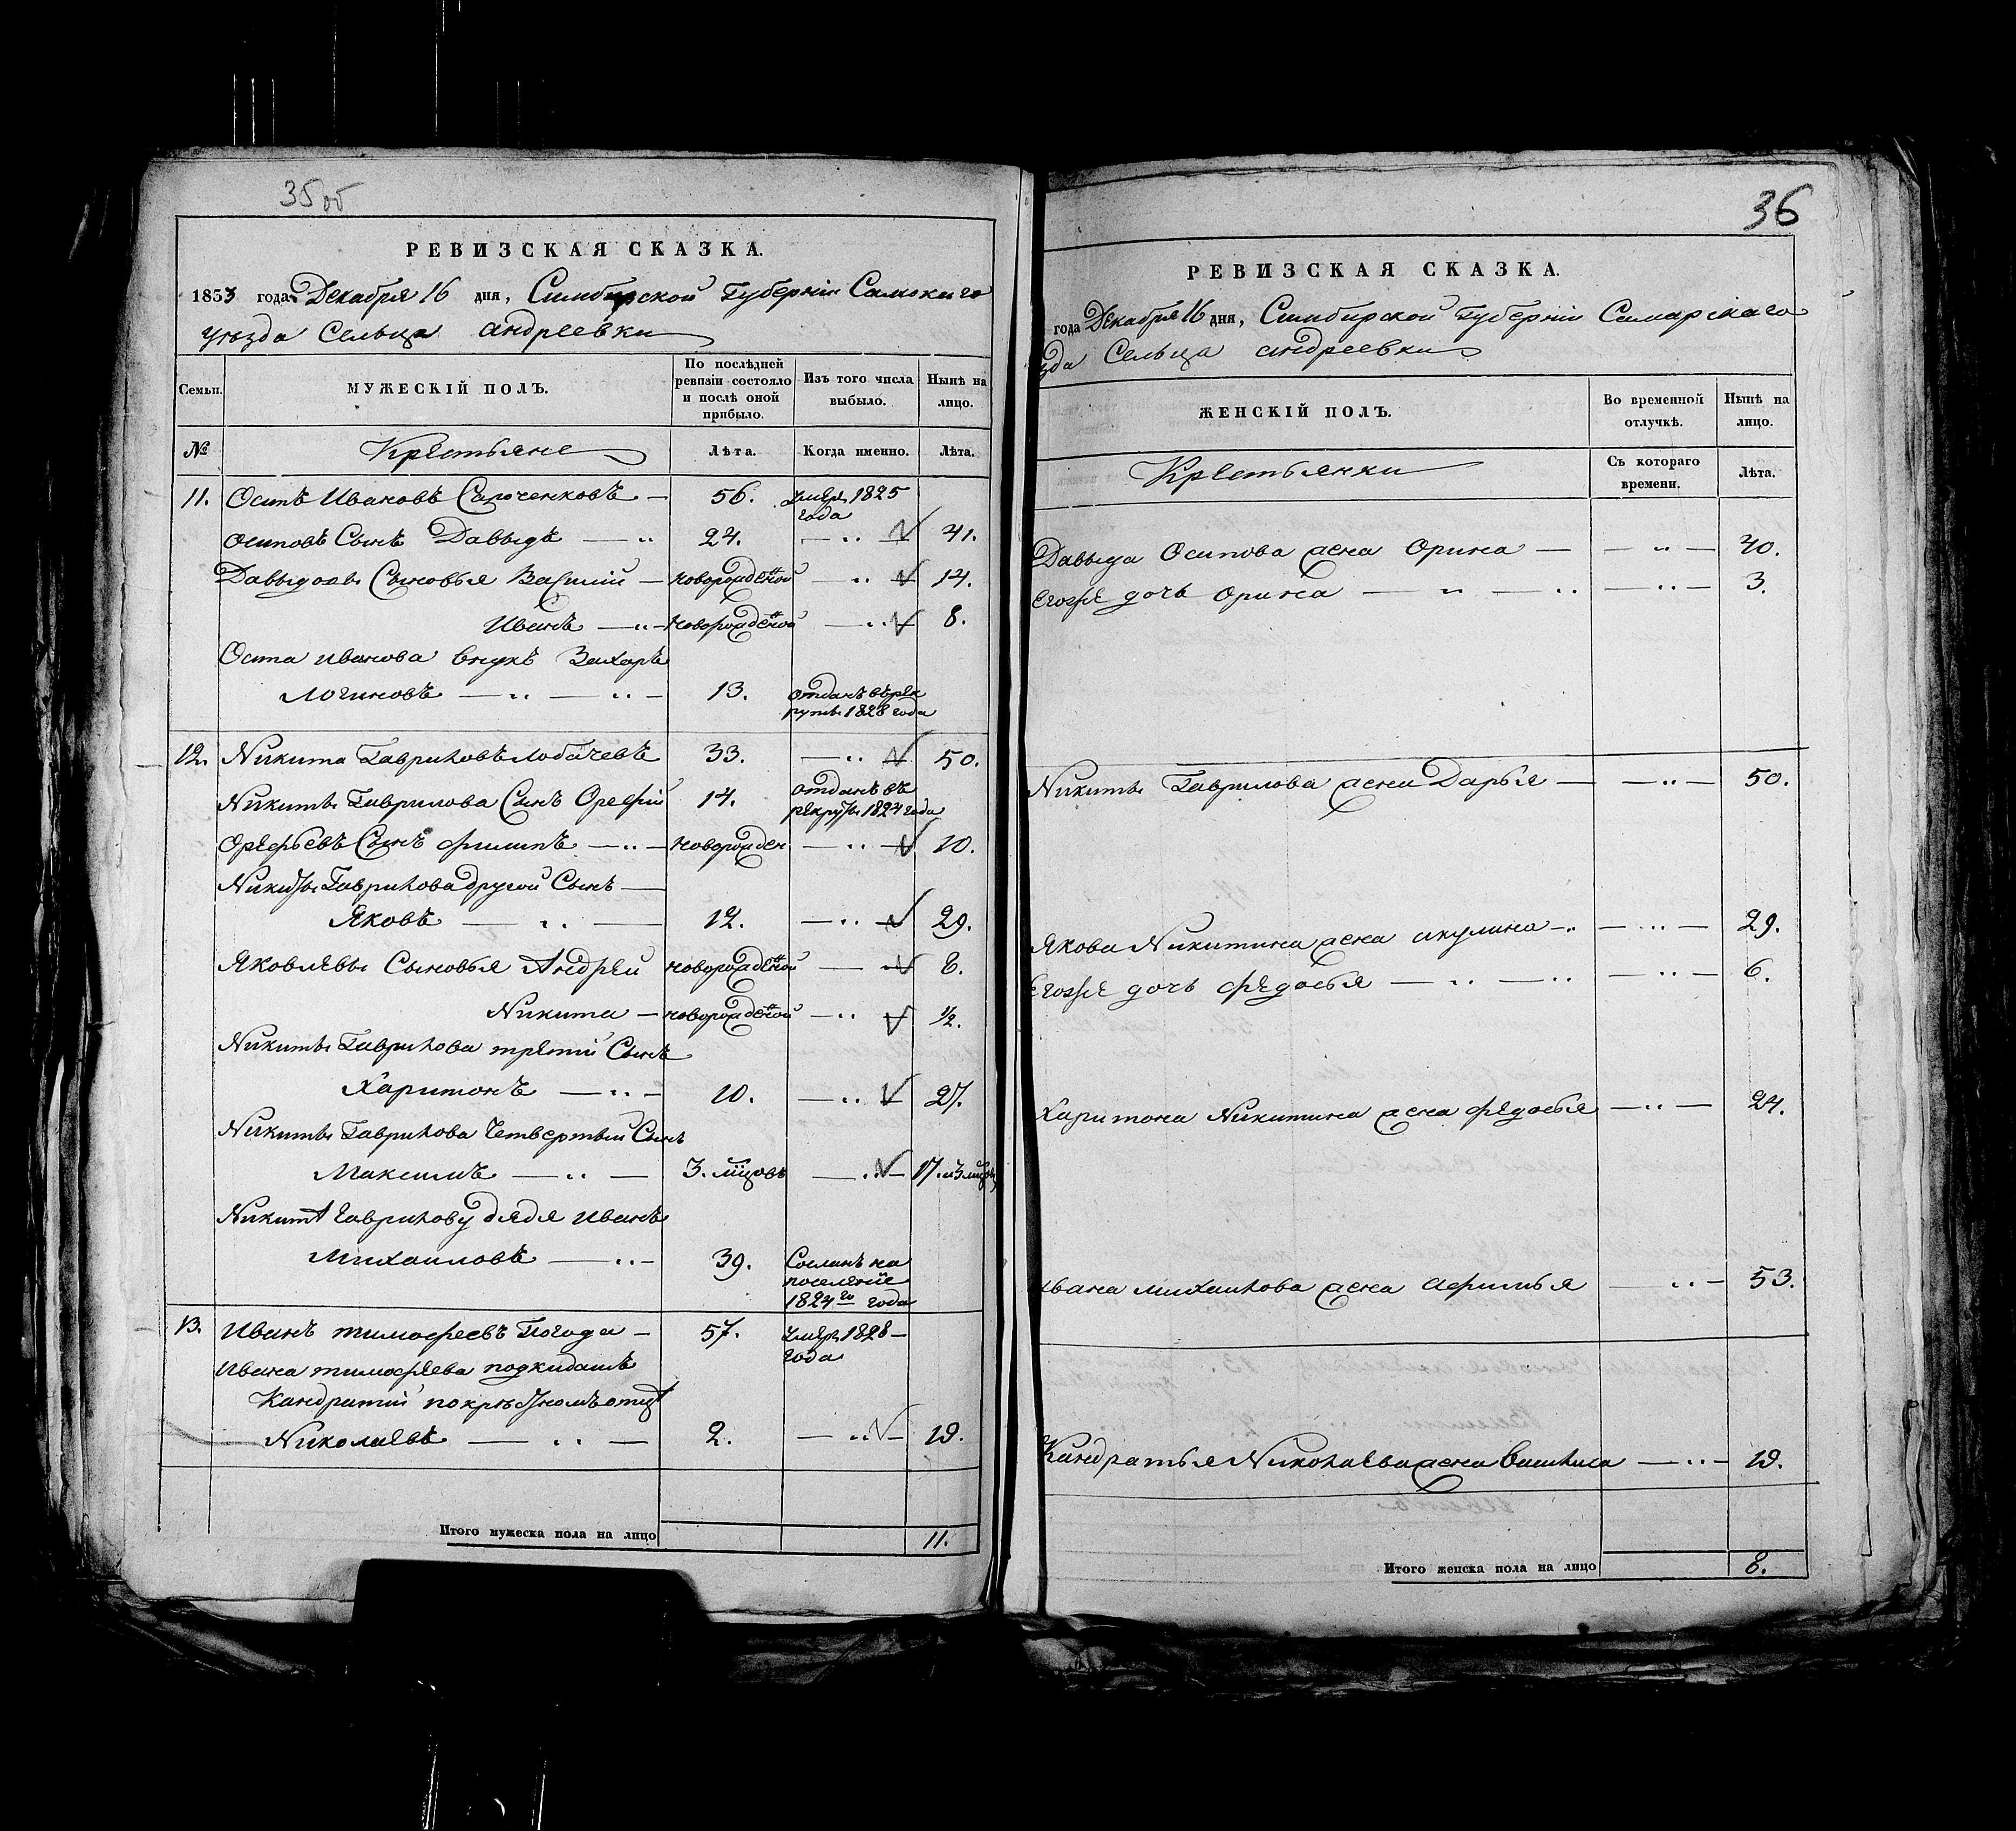 35 об
РЕВИЗСКАЯ СКАЗКА.
1833 года Декабря 16 дня, Симбирской Губерніи
уѣзда Сельца андреевки
Семьи.
МУЖЕСКІЙ ПОЛЪ.
По послѣдней ревизіи состояло и послѣ оной прибыло.
Изъ того числа выбыло.
Нынѣ на лицо.
№
Крестьяне
Лѣта.
Когда именно.
Лѣта.
11. Осипъ Ивановъ — 56. 1825
года
осиповъ Сынъ Давыдъ — 24. — 41.
Давыдовы Сыновья Василий — новорожденой — 14.
Иванъ — новорожденой — 8.
Осипа иванова внукъ Захаръ
Логиновъ — 13. отданъ въ рек
руты 1828 года
12. Никита Гавриловъ лобачевъ 33. — 50.
Никиты Гаврилова Сынъ Орефий 14. отданъ въ
рекруты 1824 года
Орефьевъ Сынъ филипъ — новорожден — 10.
Никиты Гаврилова другой Сынъ —
Яковъ — 12. — 29.
Яковлевы Сыновья Андрей новорожденой — 8.
Никита — новорожденой — ½.
Никиты Гаврилова третий Сынъ
Харитонъ — 10. — 27.
Никиты Гаврилова Четвертый Сынъ
Максимъ — 3. — 17.
Гаврилову дядя иванъ
Михаиловъ — 39. Сосланъ на
поселение
1824го года
13. Иванъ тимофеевъ Погода — 57. 1828 —
года
Ивана тимофеева подкидышъ
Кандратий по
Николаевъ — 2. — 19.
Итого мужеска пола на лицо 11.
36
РЕВИЗСКАЯ СКАЗКА.
года Декабря 16 дня, Симбирской Губерніи Самарскаго
зда Сельца андреевки
ЖЕНСКІЙ ПОЛЪ.
Во временной отлучкѣ.
Нынѣ на лицо.
Крестьянки
Съ котораго времени.
Лѣта.
Давыда Осипова жена Орина — — 40.
дочь орина — — 3.
Никиты Гаврилова жена Дарья — — 50.
Якова Никитина жена акулина — — 29.
дочь федосья — — 6.
Харитона Никитина жена федосья — 24.
Ивана михаилова жена афимья — 53.
Кандратья Николаева жена — 19.
Итого женска пола на лицо 8.